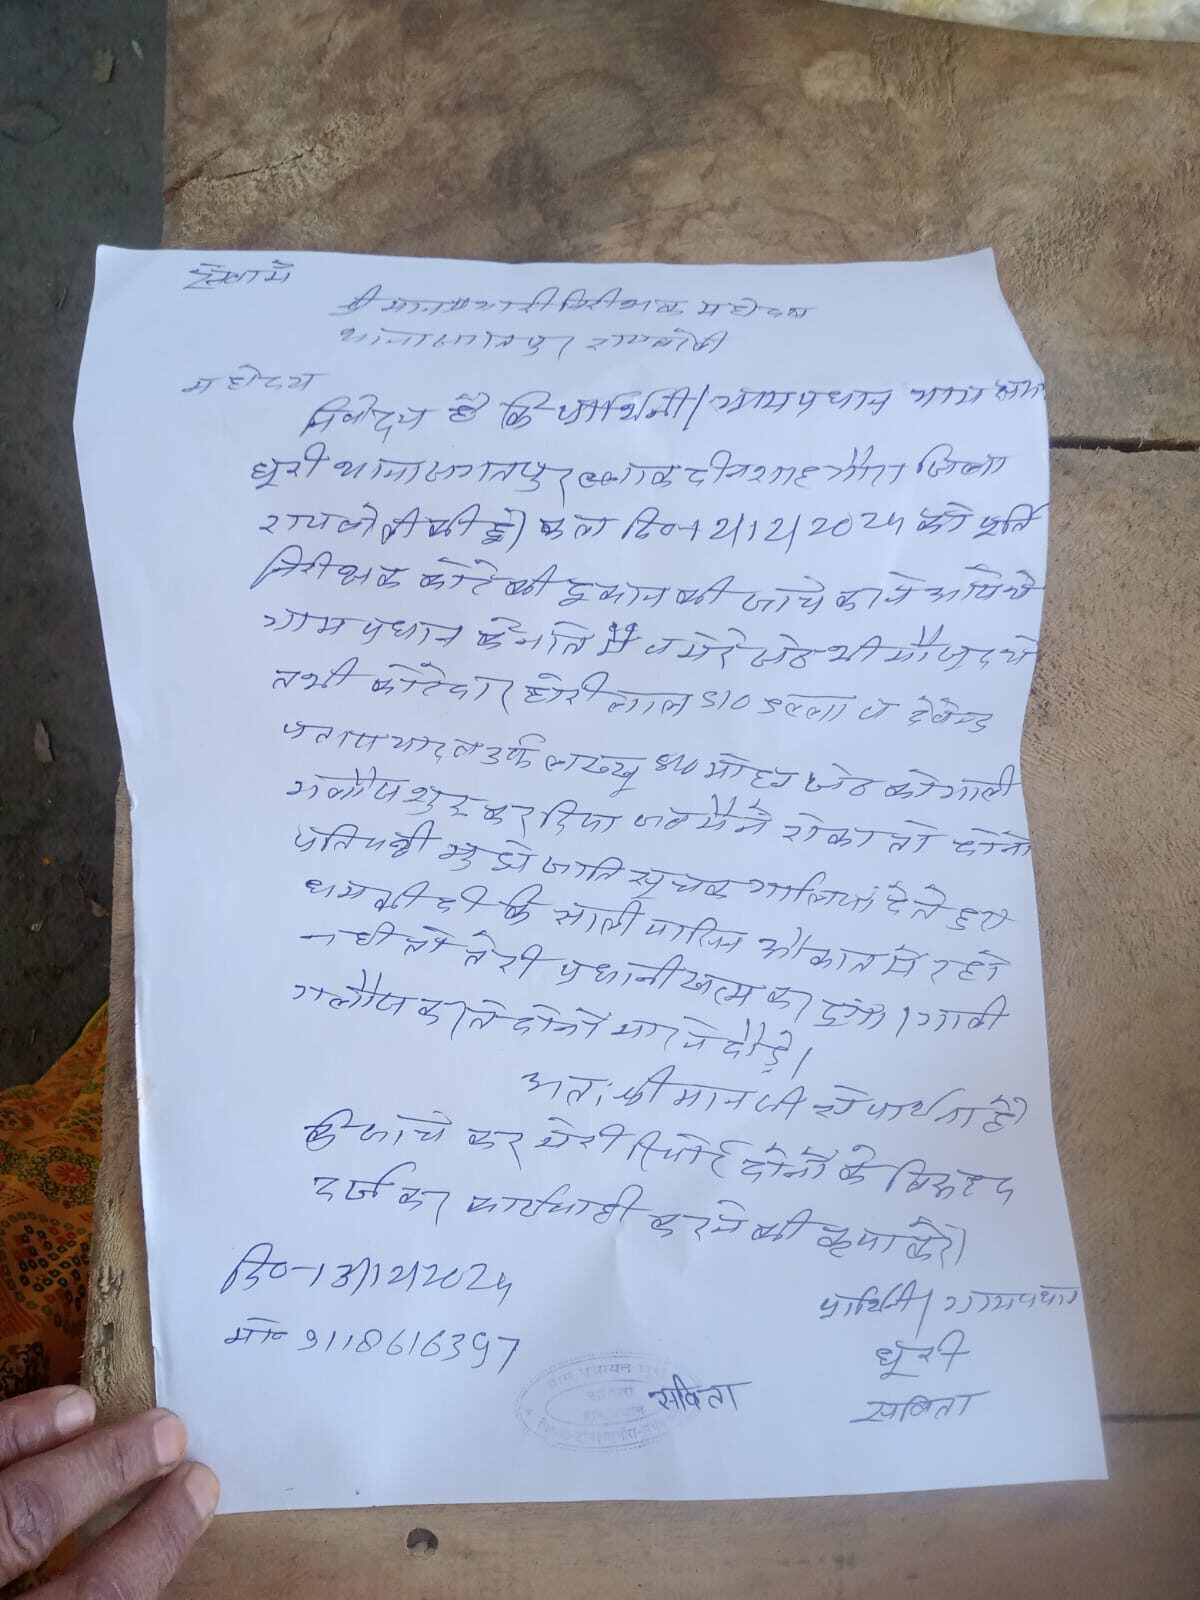 सेवा में
श्रीमान प्रभारी निरीक्षक महोदय
थाना जगतपुर रायबरेली
महोदय
निवेदन है कि प्रार्थिनी/ग्राम प्रधान ग्राम सभा
धूरी थाना जगतपुर ब्लाक दीनशाह गौरा जिला
रायबरेली की हूँ। कल दि०-12/12/2024 को पूर्ति
निरीक्षक कोटे की दुकान की जांच करने आये थे
ग्राम प्रधान के नाते मैं व मेरे जेठ भी मौजूद थे
तभी कोटेदार होरी लाल S/O व देवेन्द्र
प्रताप यादव उर्फ S/O जेठ को गाली
गलौज शुरू कर दिया जब मैंने रोका तो दोनों
प्रतिपक्षी मुझे जाति सूचक गालियां देते हुए
धमकी दी कि साली पासिन औकात में रहो
नही तो तेरी प्रधानी खत्म कर दूंगा। गाली
गलौज करते दोनों मारने दौड़े।
अतः श्रीमान जी से प्रार्थना है
कि जांच कर मेरी रिपोर्ट दोनों के विरूद्ध
दर्ज कर कार्यवाही करने की कृपा करें।
दि०-13/12/2024
प्रार्थिनी/ग्राम प्रधान
मो० 9118616397
धूरी
सविता
सविता
ग्राम पंचायत